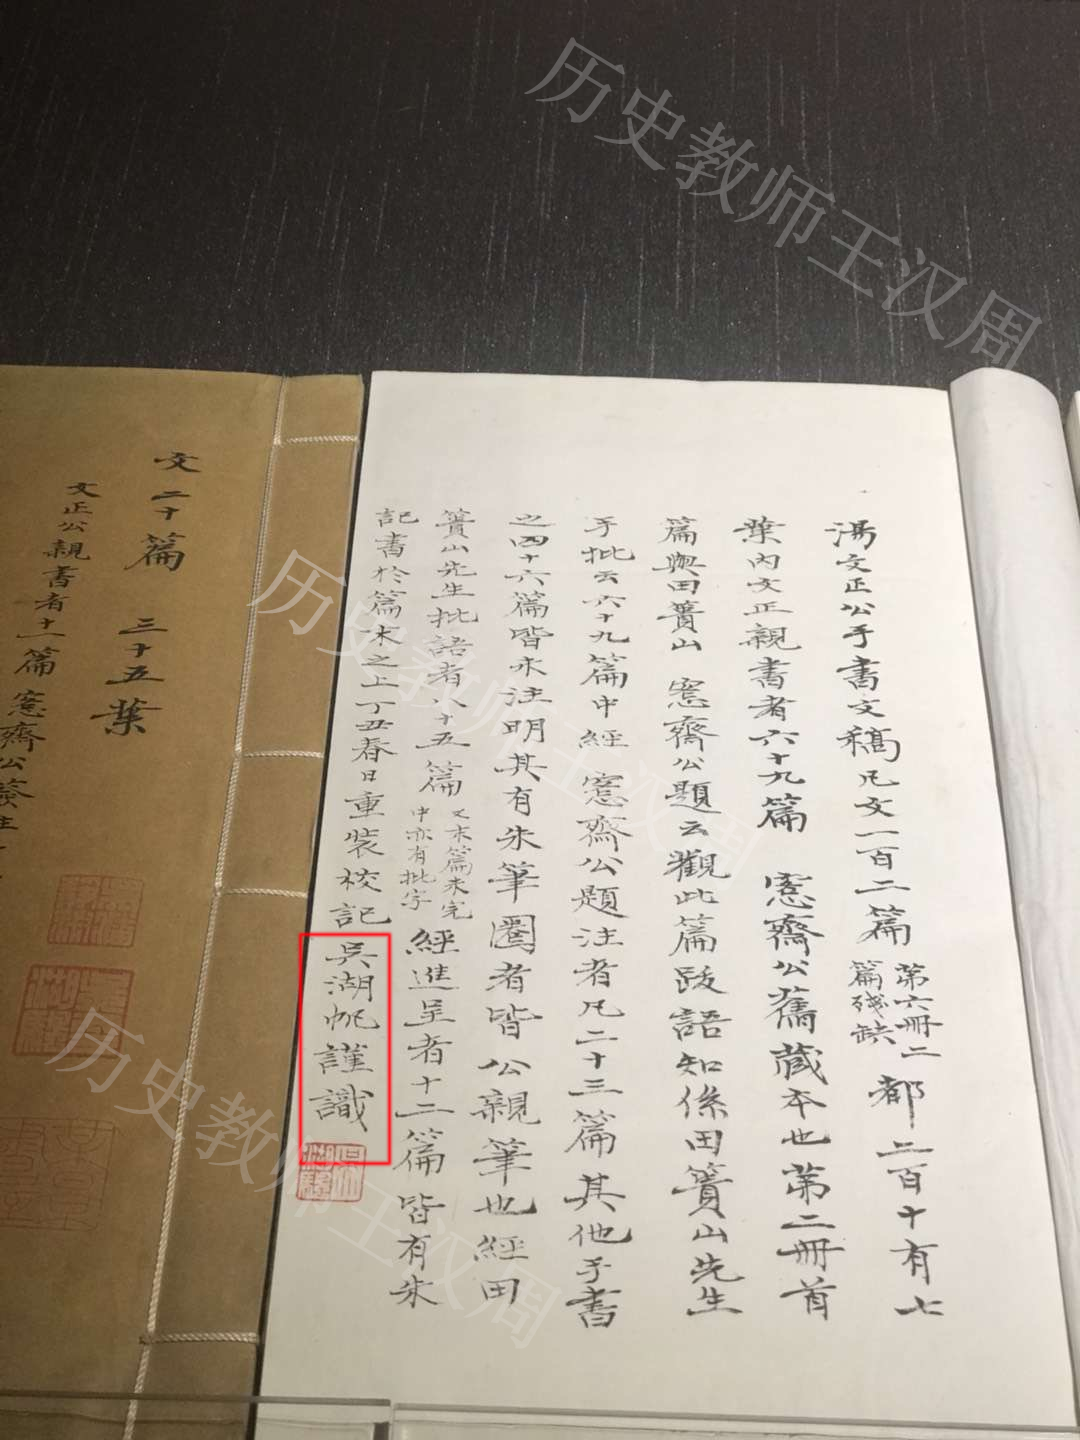 湯文正公手書文稿凡文一百二篇第六冊二篇殘缺都二百十有七
葉內文正親書者六十九篇 愙齋公舊藏本也第二冊首
篇與田簣山 愙齋公題云觀此篇跋語知係田簣山先生
手批云六十九篇中經 愙齋公題注者凡二十三篇其他手書
之四十六篇皆未注明其有朱筆圈者皆公親筆也經田
簣山先生批語者八十五篇又末篇未完中亦有批字經進呈者十二篇皆有朱
記書於篇末之上丁丑春日重裝校記吳湖帆謹識
文二十篇 三十五葉
文正公親書者十一篇愙齋公簽注
历史教师王汉周
历史教师王汉周
历史教师王汉周